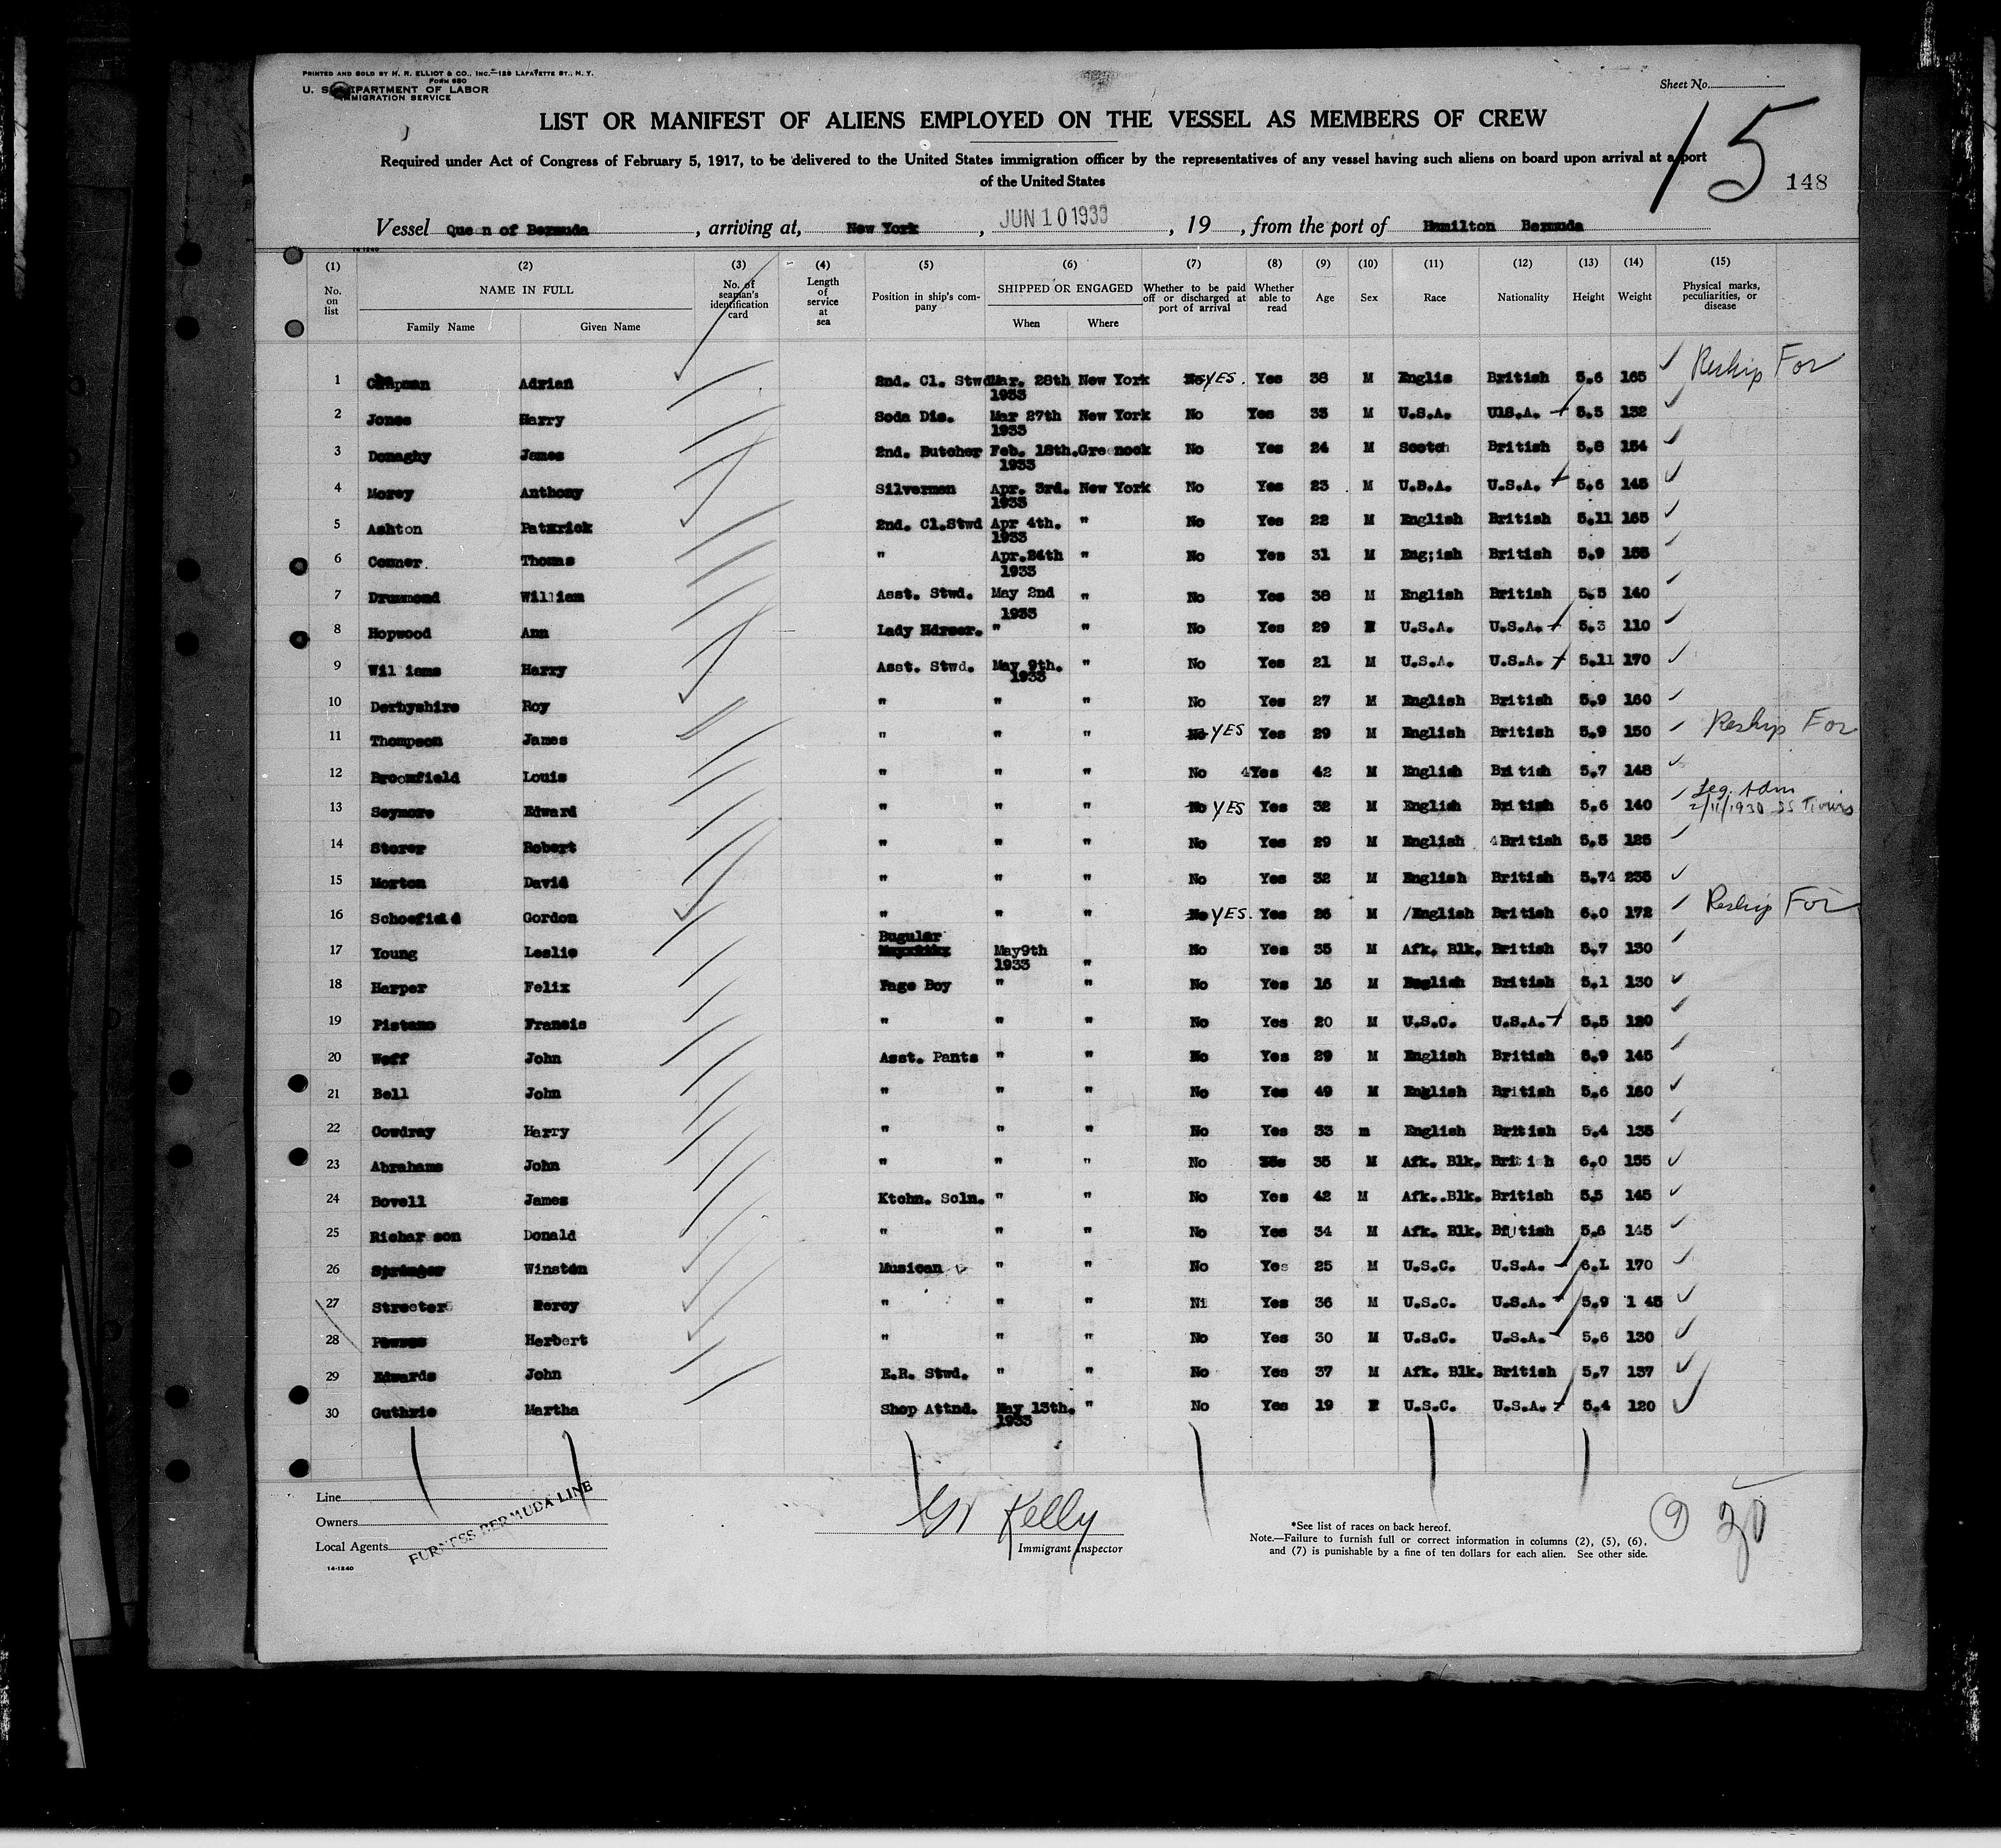 PRINTED AND SOLD BY H. R. ELLIOT & CO., INC.—129 LAFAYETTE ST., N. Y.
FORM 680
U. S. DEPARTMENT OF LABOR
IMMIGRATION SERVICE
Sheet No.
LIST OR MANIFEST OF ALIENS EMPLOYED ON THE VESSEL AS MEMBERS OF CREW
Required under Act of Congress of February 5, 1917, to be delivered to the United States immigration officer by the representatives of any vessel having such aliens on board upon arrival at a port
of the United States
15
148
Vessel Quee n of Bermuda , arriving at, New York , JUN 10 1933 , 19 , from the port of Hamilton Bermuda
14-1240
(1) (2) (3) (4) (5) (6) (7) (8) (9) (10) (11) (12) (13) (14) (15)
No. on list NAME IN FULL Family Name Given Name No. of seaman's identification card Length of service at sea Position in ship's company SHIPPED OR ENGAGED When Where Whether to be paid off or discharged at port of arrival Whether able to read Age Sex Race Nationality Height Weight Physical marks, peculiarities, or disease
1 Chapman Adrian 2nd. Cl. Stwd Mar. 28th 1933 New York No YES. Yes 38 M Englis British 5.6 165 Reship For
2 Jones Harry Soda Dis. Mar 27th 1933 New York No Yes 33 M U.S.A. U1S.A. 5.5 132
3 Donaghy James 2nd. Butcher Feb. 18th. 1933 Greenock No Yes 24 M Scotch British 5.8 154
4 Morey Anthony Silverman Apr. 3rd. 1933 New York No Yes 23 M U.S.A. U.S.A. 5.6 145
5 Ashton Patxrick 2nd. Cl.Stwd Apr 4th. 1933 " No Yes 22 M English British 5.11 165
6 Conner. Thomas " Apr.24th 1933 " No Yes 31 M Eng;ish British 5.9 155
7 Drummond William Asst. Stwd. May 2nd 1933 " No Yes 38 M English British 5.5 140
8 Hopwood Ann Lady Hdrser. " " No Yes 29 F U.S.A. U.S.A. 5.3 110
9 Wil iams Harry Asst. Stwd. May 9th. 1933 " No Yes 21 M U.S.A. U.S.A. 5.11 170
10 Derbyshire Roy " " " No Yes 27 M English British 5.9 160
11 Thompson James " " " No YES Yes 29 M English British 5.9 150 Reship For
12 Broomfield Louis " " " No 4Yes 42 M English Bri tish 5.7 148
13 Seymore Edward " " " No YES Yes 32 M English British 5.6 140 Leg. Adm 2/11/1930 SS
14 Storer Robert " " " No Yes 29 M English 4British 5.5 125
15 Morton David " " " No Yes 32 M English British 5.74 235
16 Schoefield Gordon " " " No YES. Yes 26 M /English British 6.0 172 Reship For
17 Young Leslie Bugular May9th 1933 " No Yes 35 M Afk. Blk. British 5.7 130
18 Harper Felix Page Boy " " No Yes 16 M English British 5.1 130
19 Pistano Francis " " " No Yes 20 M U.S.C. U.S.A. 5.5 120
20 Weff John Asst. Pants " " No Yes 29 M English British 5.9 145
21 Bell John " " " No Yes 49 M English British 5.6 160
22 Cowdray Harry " " " No Yes 33 m English British 5.4 135
23 Abrahams John " " " No Yes 35 M Afk. Blk. Briti h 6.0 155
24 Bovell James Ktchn. Scln. " " No Yes 42 M Afk..Blk. British 5.5 145
25 Richar son Donald " " " No Yes 34 M Afk. Blk. British 5.6 145
26 Springer Winston Musican " " No Yes 25 M U.S.C. U.S.A. 6.L 170
27 Streeter Percy " " " Ni Yes 36 M U.S.C. U.S.A. 5.9 1 45
28 Herbert " " " No Yes 30 M U.S.C. U.S.A. 5.6 130
29 Edwards John E.R. Stwd. " " No Yes 37 M Afk. Blk. British 5.7 137
30 Guthrie Martha Shop Attnd. May 13th. 1933 " No Yes 19 F U.S.C. U.S.A. 5.4 120
Line
Owners
Local Agents
FURNESS BERMUDA LINE
14-1240
Kelly
Immigrant Inspector
*See list of races on back hereof.
Note.—Failure to furnish full or correct information in columns (2), (5), (6),
and (7) is punishable by a fine of ten dollars for each alien. See other side.
9